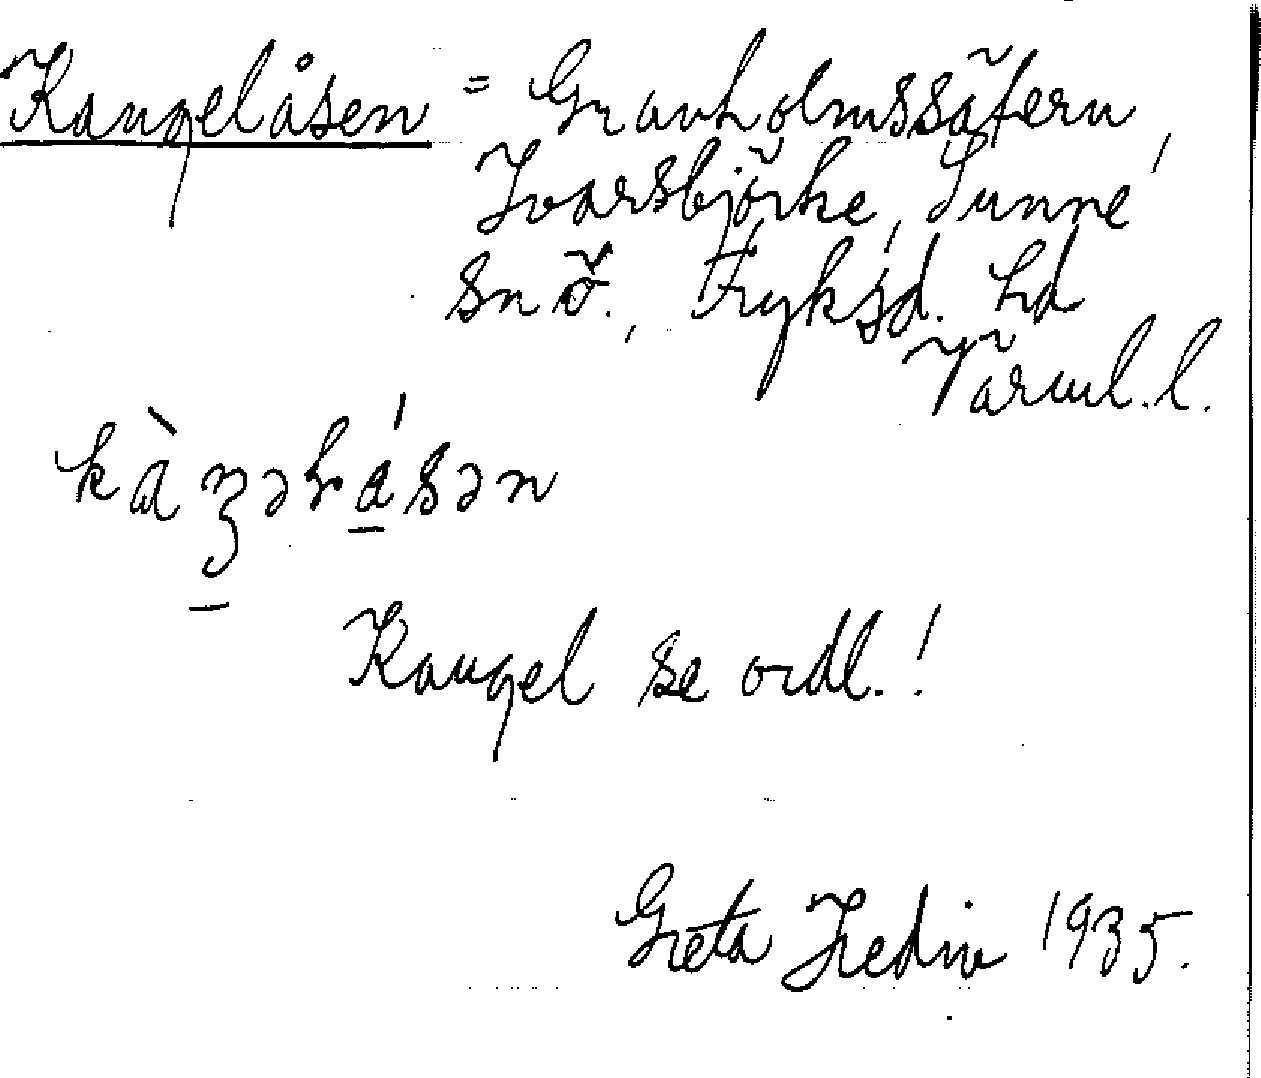 Kangelåsen = Granholmssätern,
Ivarsbjörke, Sunne
snö., Fryksd. hd
Värml.l.
kàŋəɫásən
Kangel se ordl.!
Greta Hedin 1935.